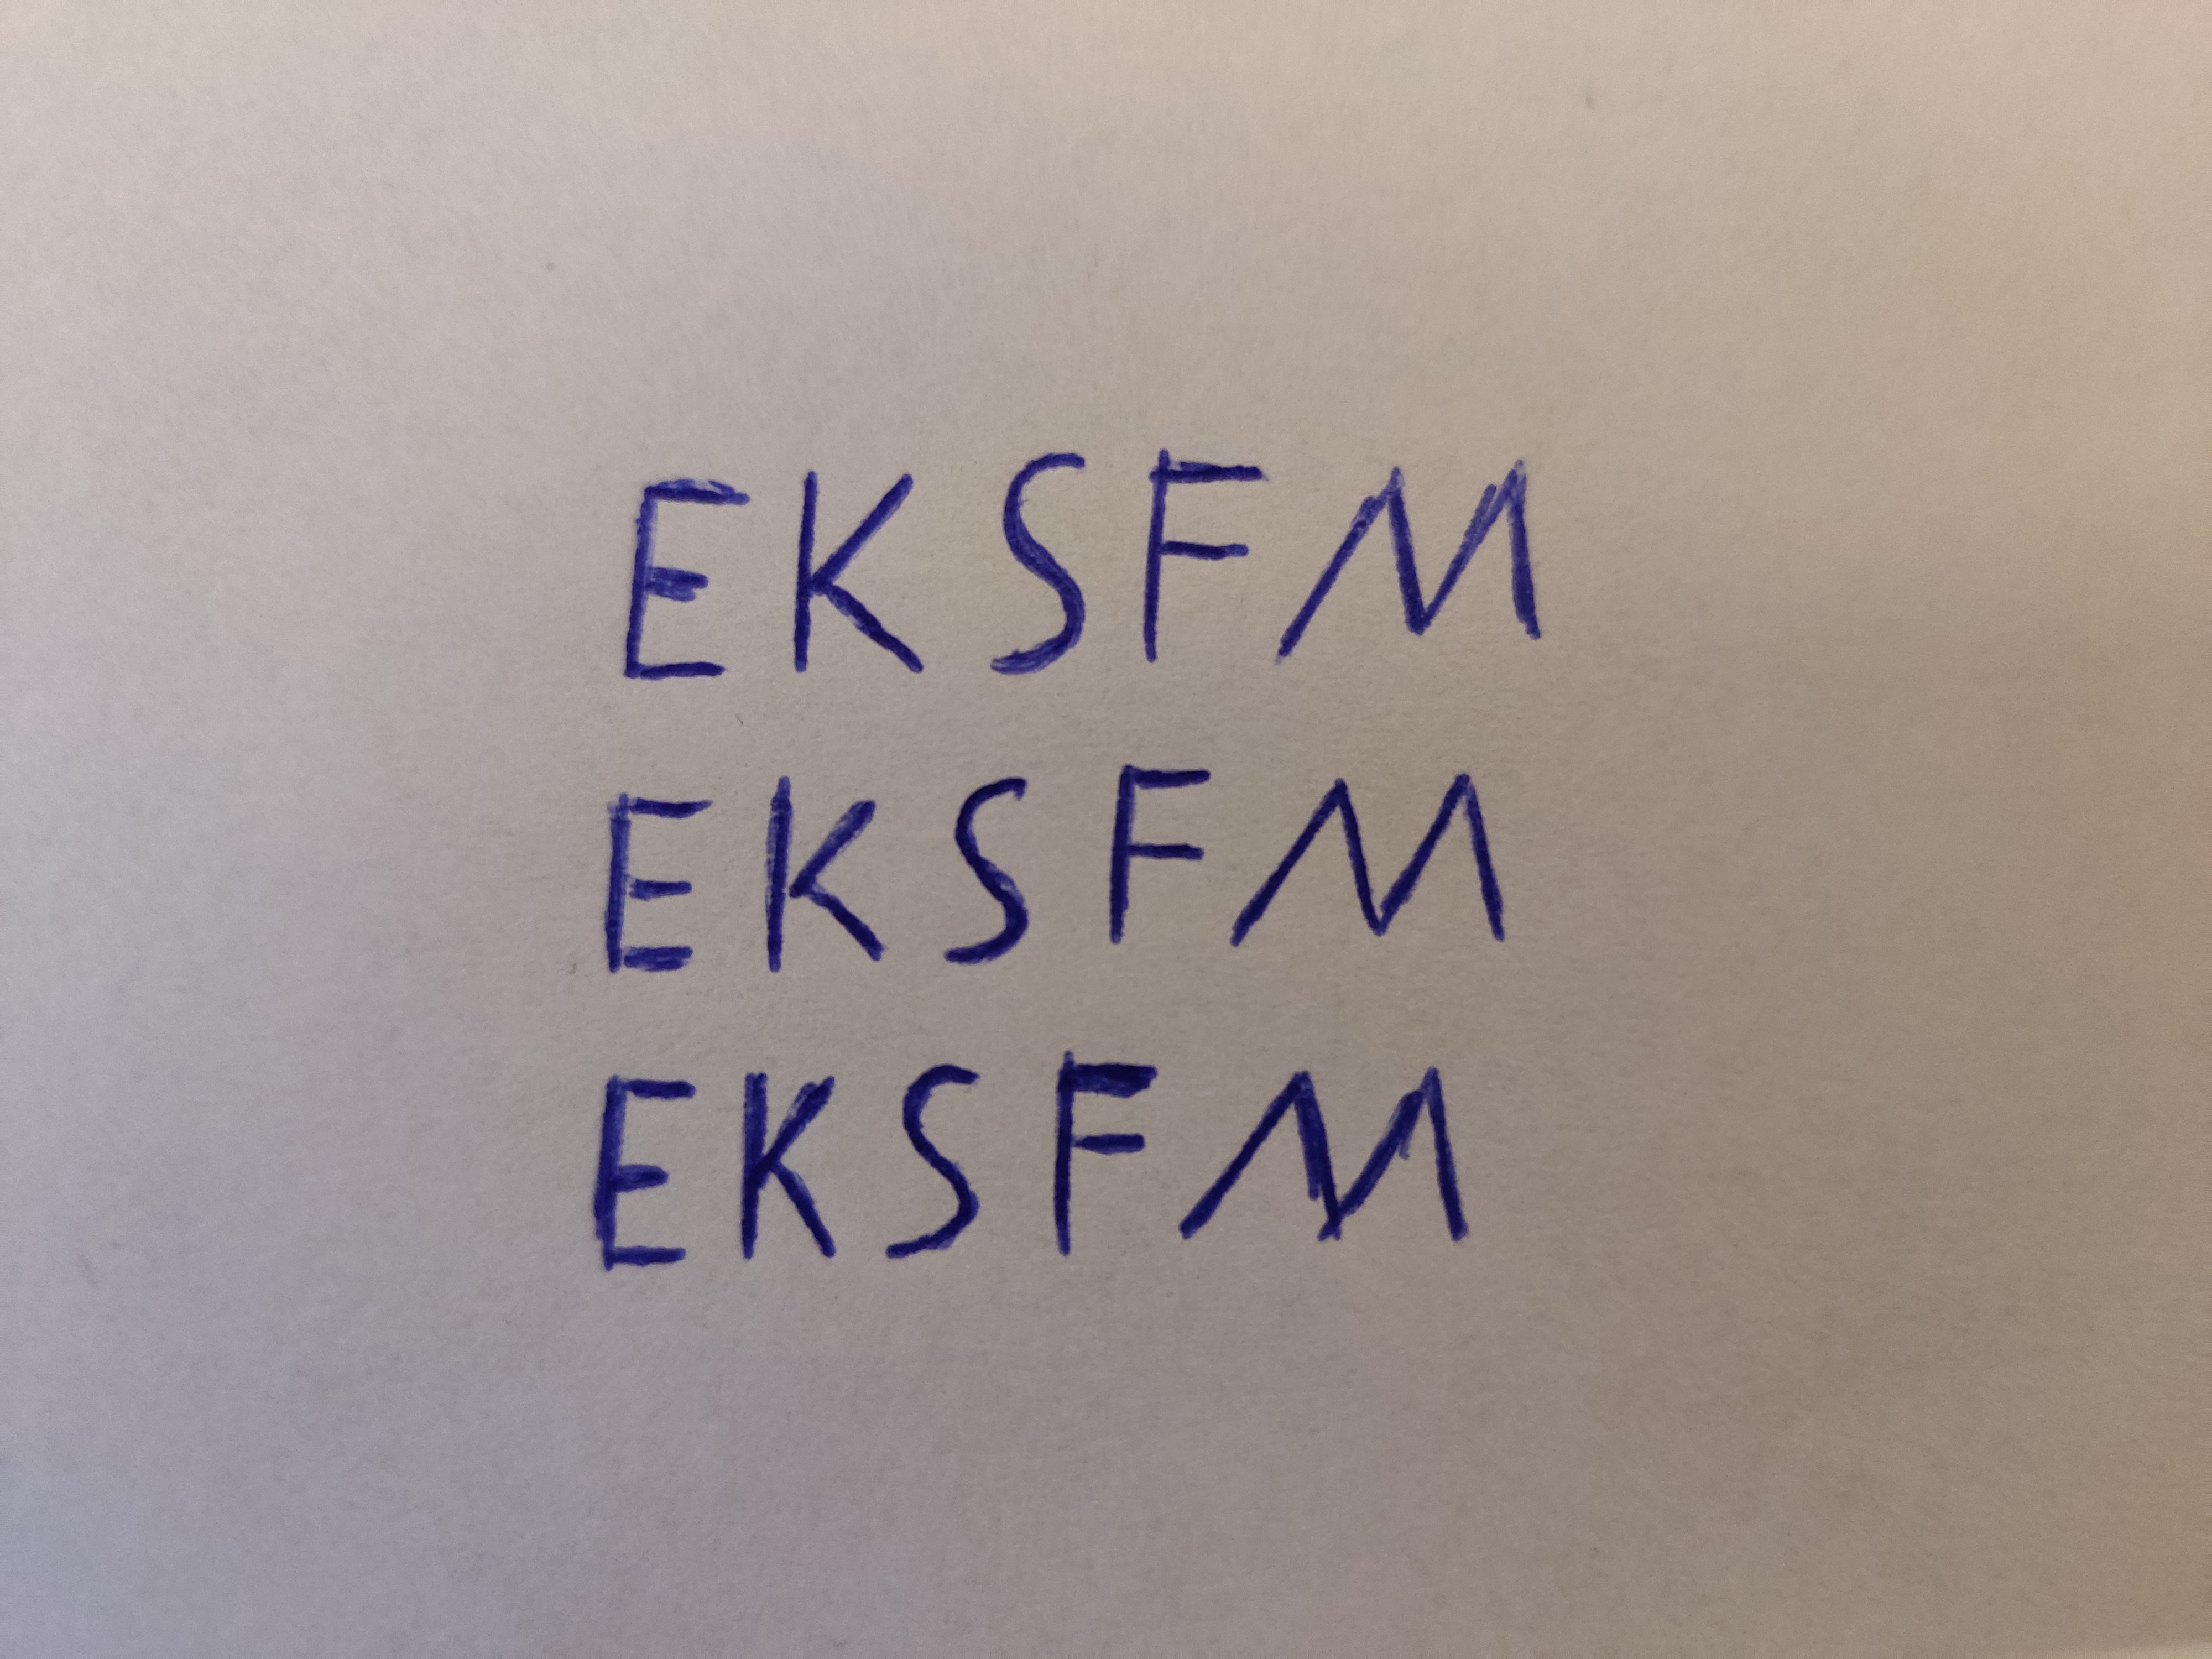 EKSFM
EKSFM
EKSFM